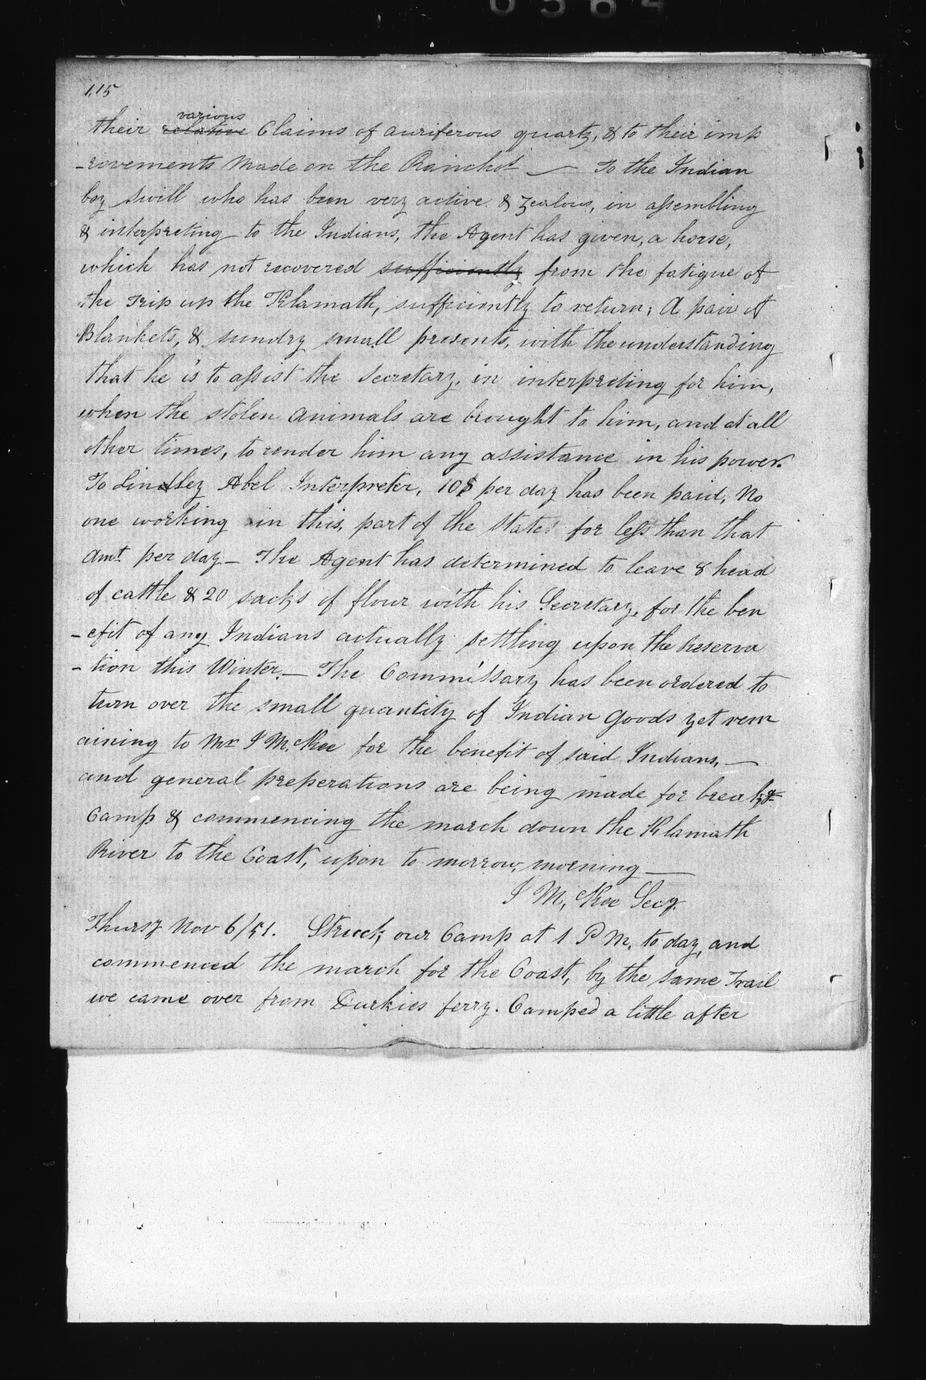 0564
115
various
their relative Claims of auriferous quartz, & to their imp
-rovements made on the Ranchot — To the Indian
boy Swill who has been very active & zealous, in assembling
& interpreting to the Indians, the Agent has given, a horse,
which has not recovered sufficiently from the fatigue of
the trip up the Klamath, sufficiently to return; A pair of
Blankets, & sundry small presents, with the understanding
that he is to assist the Secretary, in interpreting for him,
when the stolen animals are brought to him, and at all
other times, to render him any assistance in his power.
To Lindley Abel Interpreter, 10$ per day has been paid, No
one working in this, part of the State for less than that
Amt per day — The Agent has determined to leave 8 head
of cattle & 20 sacks of flour with his Secretary, for the ben
-efit of any Indians actually settling upon the Reserva
-tion this Winter. — The Commissary has been ordered to
turn over the small quantity of Indian Goods yet rem
aining to Mr J McKee for the benefit of said Indians, —
and general preperations are being made for breakg
Camp & commencing the march down the Klamath
River to the Coast, upon to morrow, morning —
J McKee Secy.
Thursy Nov 6/51. Struck our Camp at 1 P M, to day, and
commenced the march for the Coast, by the same Trail
we came over from Durkies ferry. Camped a little after